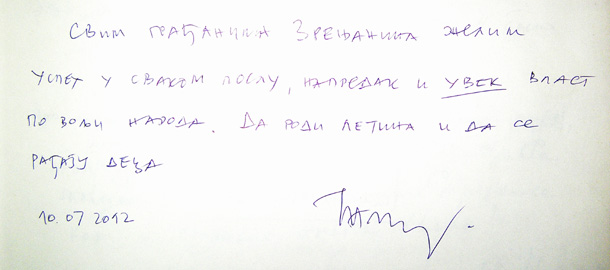 Свим грађанима Зрењанина желим
успех у сваком послу, напредак и увек власт
по вољи народа. Да роди летина и да се
рађају деца
10.07 2012